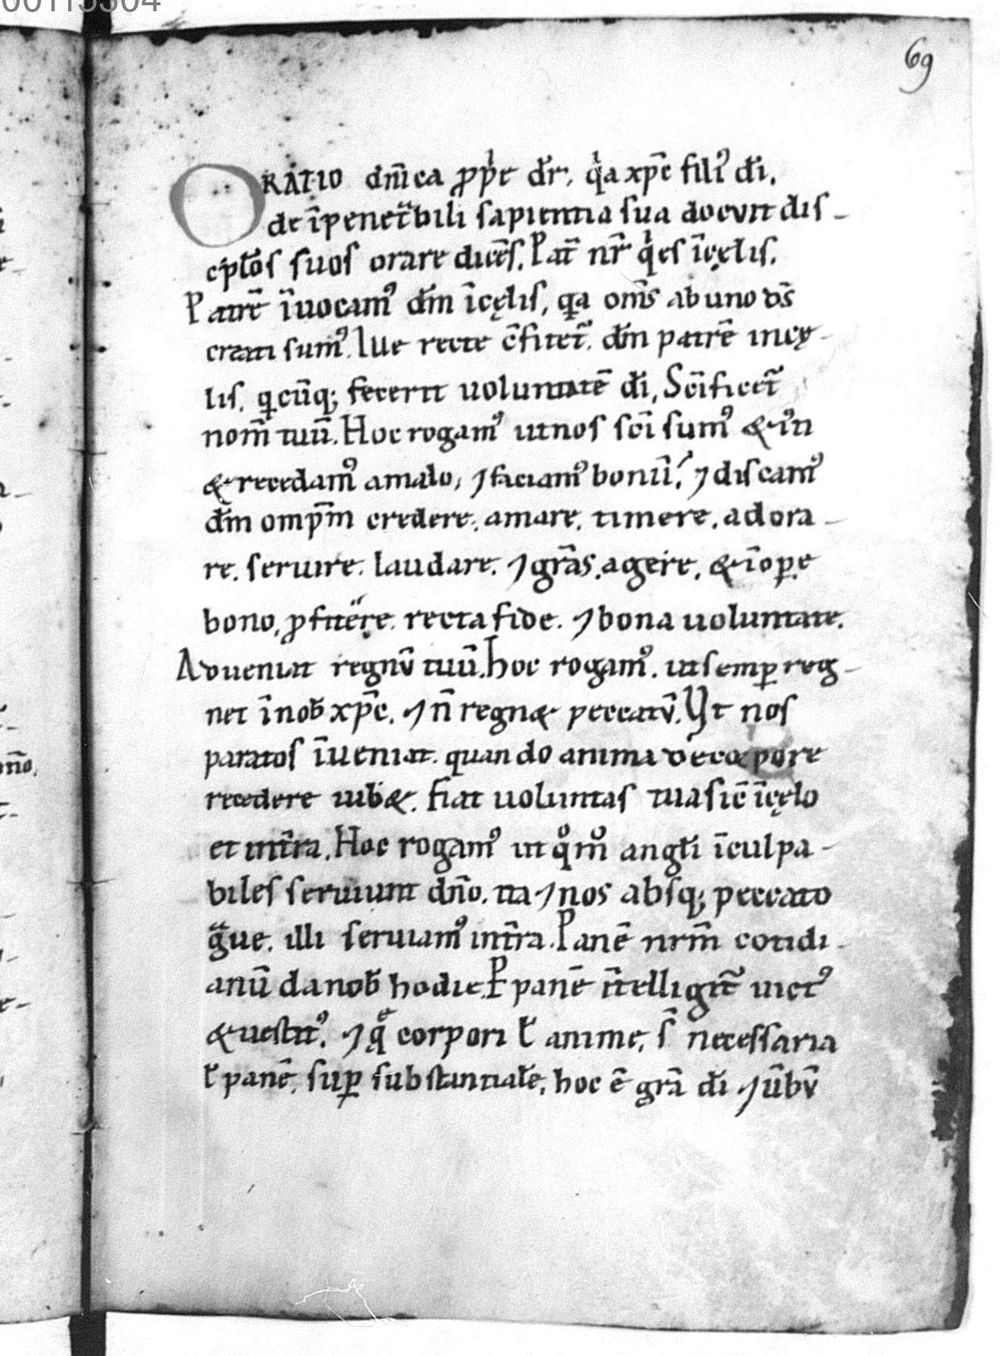 00115304
69
ORATIO dn̄ica ꝓpͥe dr̄, qͥa xp̄c filiꝰ dī,
de īpenet̄bili sapientia sua docuit dis-
cipl̄os suos orare dicēs, Pat̄ nr̄ qͥ es ī cęlis,
Patrē īuocamꝰ dm̄ ī cęlis, qͥa om̄s ab uno ds̄
creati sumꝰ. Iue recte cfitet̄. dm̄ patrē in cę-
lis, qͥcūq; fecerit uoluntatē dī, Scīficet̄
nom̄ tuū. Hoc rogamꝰ ut nos scī sumꝰ & īn
& recedamꝰ a malo, ⁊ faciamꝰ bonū, ⁊ discamꝰ
dm̄ omp̄m credere, amare, timere, adora-
re, seruire, laudare, ⁊ grās agere, & ī oꝑe
bono, ꝓfitēre recta fide, ⁊ bona uoluntate.
Adueniat regnū tuū. hoc rogamꝰ, ut semꝑ reg-
net ī nob̄ xp̄c, ⁊ n̄ regn& peccatū. Ut nos
paratos īueniat, quando anima de corpore
recedere iub&. Fiat uoluntas tua sic̄ ī cęlo
et in t̄ra. Hoc rogamꝰ ut qͦmͦ angl̄i īculpa-
biles seruiunt dn̄o, ita ⁊ nos absq; peccato
ḡue, illi seruiamꝰ in t̄ra. Panē nrm̄ cotidi-
anū da nob̄ hodie. P panē īntelligit̄ uictꝰ
& uestitꝰ, ⁊ q̄ corpori ł anime, s̄ necessaria
ł panē, suꝑ substantialē, hoc ē grā dī ⁊ ūbū